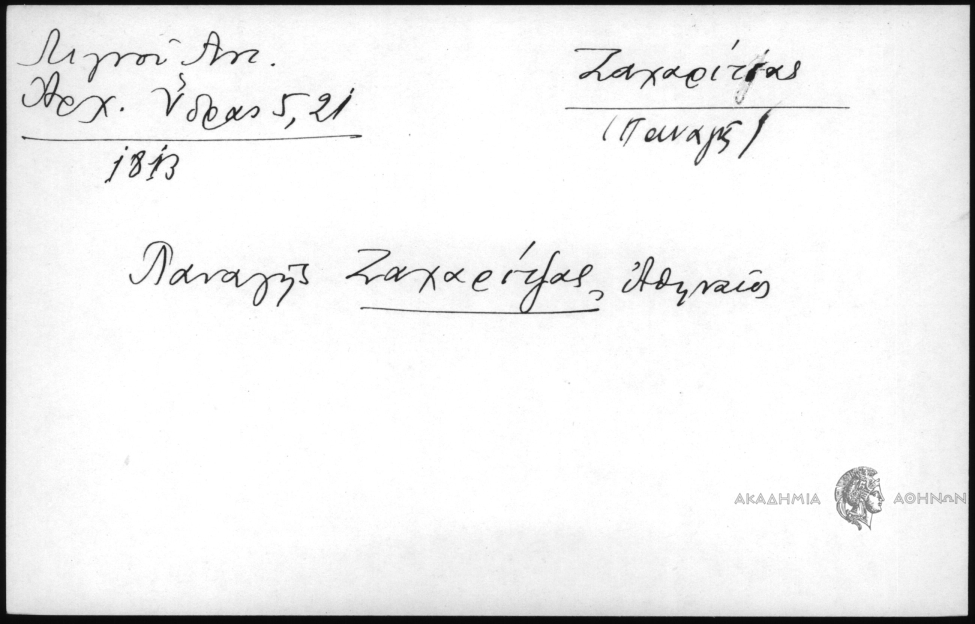 Λιγνού Αντ.
Αρχ. Ύδρας 5, 21
1813
Ζαχαρίτσας
(Παναγής)
Παναγής Ζαχαρίτζας, Ἀθηναῖος
ΑΚΑΔΗΜΙΑ ΑΘΗΝΩΝ